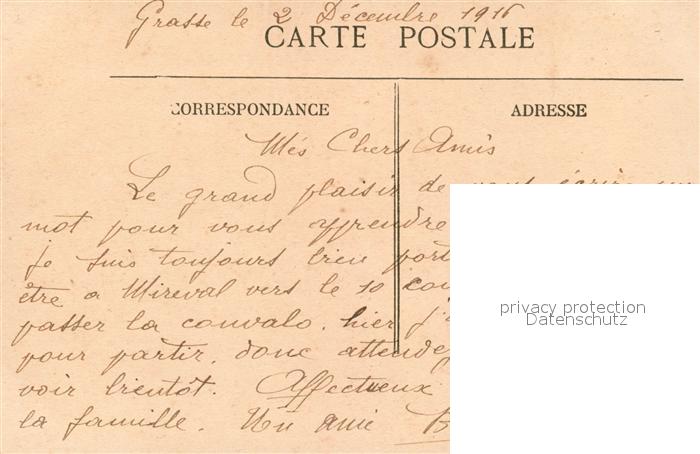 Grasse le 2 Décembre 1916
CARTE POSTALE
CORRESPONDANCE
ADRESSE
Més Chers Amis
Le grand plaisir de vous écrire un
mot pour vous apprendre
je suis toujours bien port
être a Mireval vers le 10 cou
passer la convalo. hier j'
pour partir. donc attendez
voir bientôt. Affectueux
la famille. Un ami B
privacy protection
Datenschutz